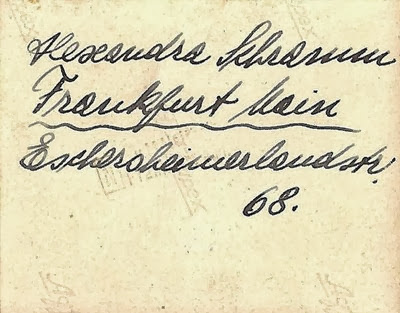 Alexandra Schramm
Frankfurt Main
Eschersheimerlandstr.
68.